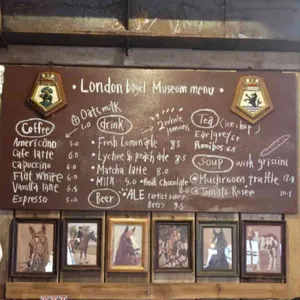 London bagel Museum menu
Coffee
Americano 5.0
Cafe latte 6.0
Cappuccino 6.0
Flat white 6.0
Vanilla latte 6.5
Espresso 5.0
Oats milk 1.0
drink
2 whole lemons
Fresh Lemonade 8.5
Lychee & peach ale 8.5
Matcha latte 8.0
Milk 5.0 Real Chocolate 8.0
Beer
ALE
Beer 9.5
Tea (ice, hot)
Earl grey 6.0
Rooibos 6.0
Soup with grissini
Mushroom truffle
Tomato Rosée